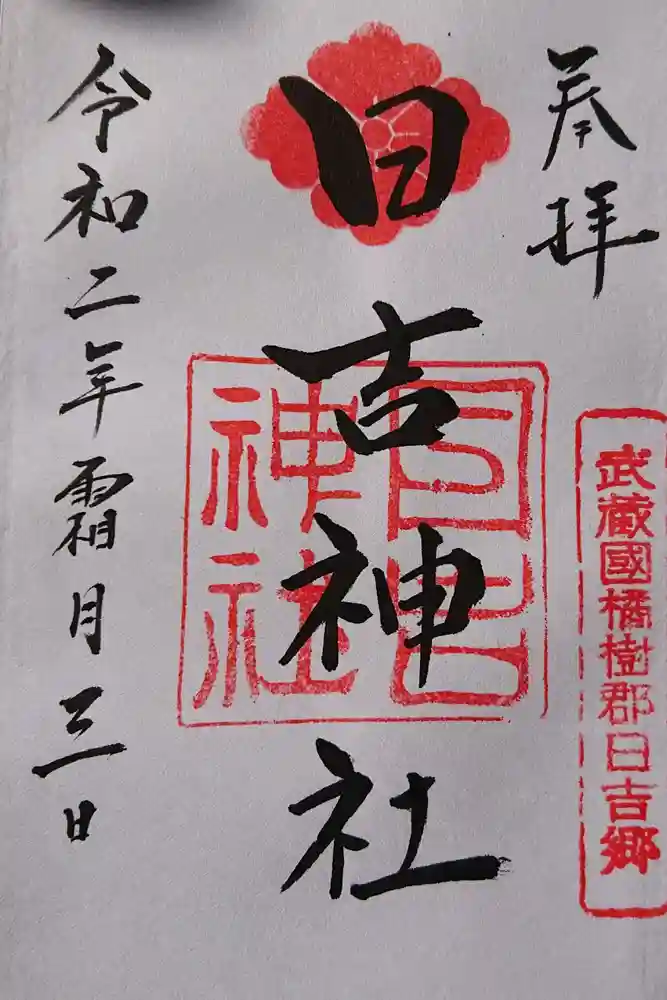 奉拝
武蔵國橘樹郡日吉郷
日吉神社
日吉
神社
令和二年霜月三日